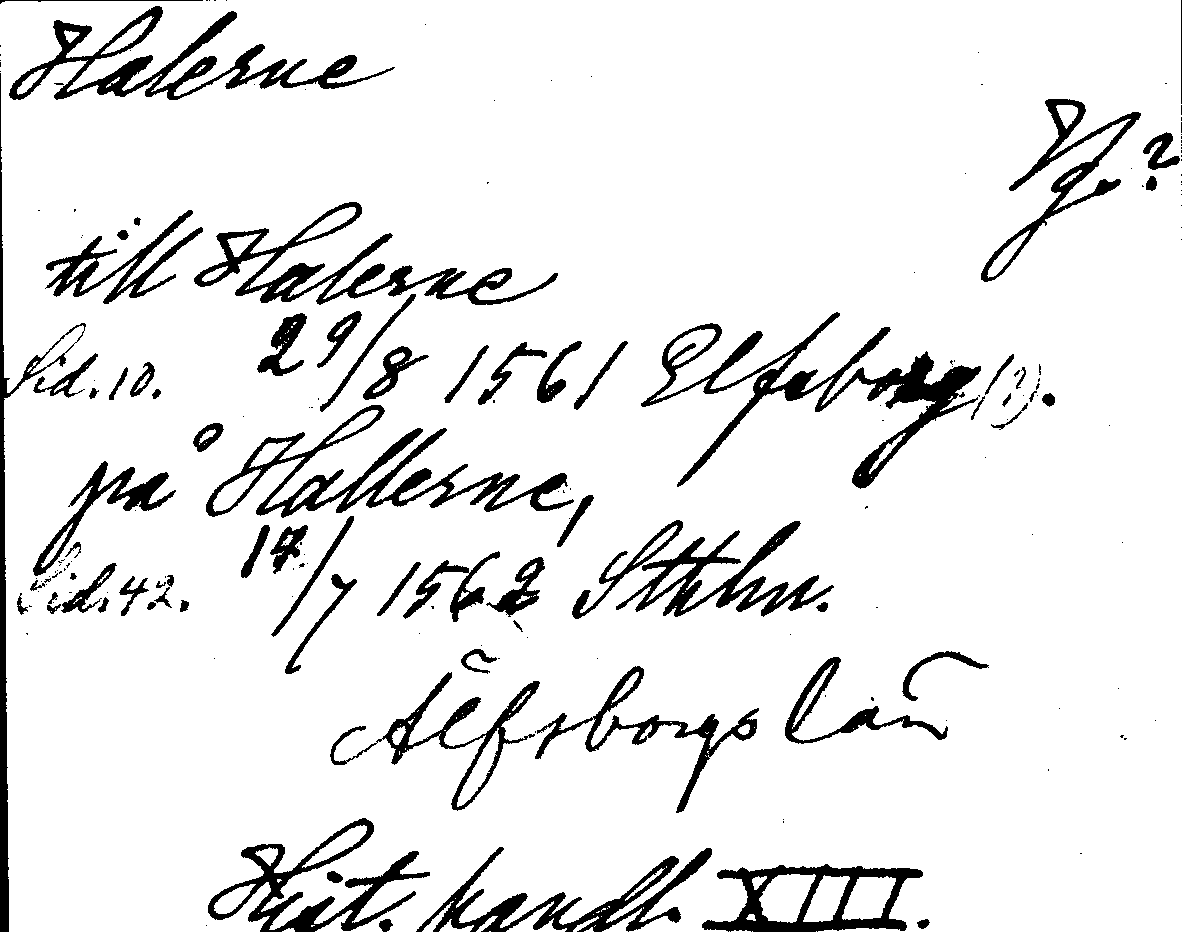 Halerne
Vg.?
till Halerne
Sid. 10. 29/8 1561 Elfsborg (?).
på Hallerne,
Sid. 42. 17/7 1562 Sthlm.
Älfsborgs län
Hist. handl. XIII.